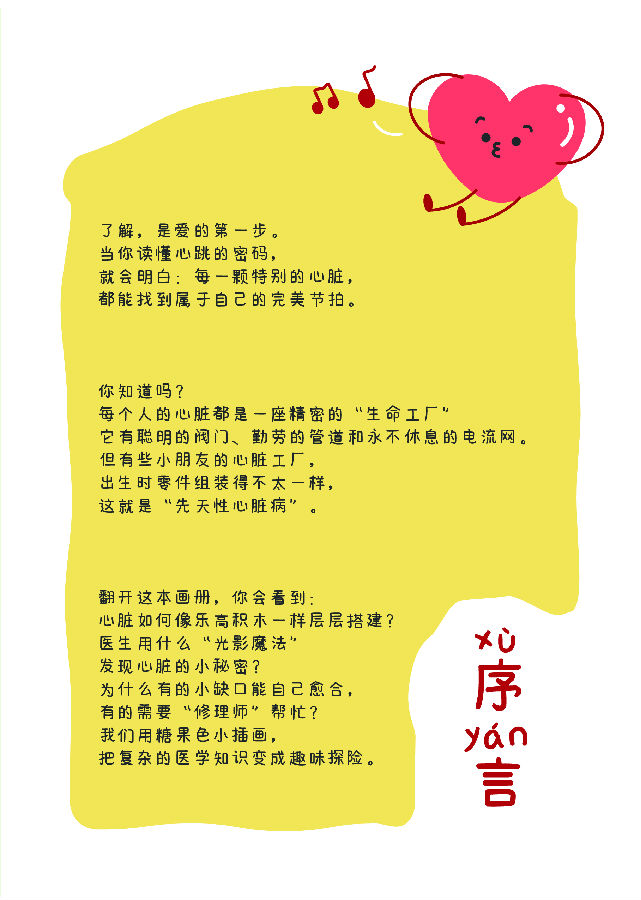 了解，是爱的第一步。
当你读懂心跳的密码，
就会明白：每一颗特别的心脏，
都能找到属于自己的完美节拍。
你知道吗？
每个人的心脏都是一座精密的“生命工厂”
它有聪明的阀门、勤劳的管道和永不休息的电流网。
但有些小朋友的心脏工厂，
出生时零件组装得不太一样，
这就是“先天性心脏病”。
翻开这本画册，你会看到：
心脏如何像乐高积木一样层层搭建？
医生用什么“光影魔法”
发现心脏的小秘密？
为什么有的小缺口能自己愈合，
有的需要“修理师”帮忙？
我们用糖果色小插画，
把复杂的医学知识变成趣味探险。
xù
序
yán
言